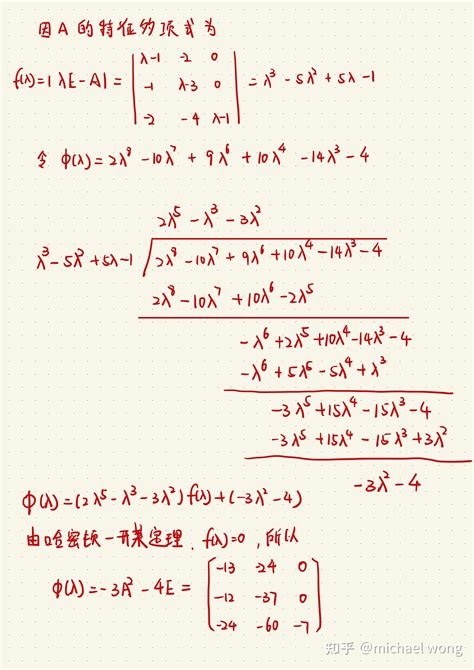 因A的特征多项式为
f(λ)=|λE-A|= | λ-1 -2 0 | = λ³-5λ²+5λ-1
| -1 λ-3 0 |
| -2 -4 λ-1 |
令 φ(λ)=2λ⁸-10λ⁷+9λ⁶+10λ⁴-14λ³-4
2λ⁵-λ³-3λ²
λ³-5λ²+5λ-1 2λ⁸-10λ⁷+9λ⁶+10λ⁴-14λ³-4
2λ⁸-10λ⁷+10λ⁶-2λ⁵
-λ⁶+2λ⁵+10λ⁴-14λ³-4
-λ⁶+5λ⁵-5λ⁴+λ³
-3λ⁵+15λ⁴-15λ³-4
-3λ⁵+15λ⁴-15λ³+3λ²
-3λ²-4
φ(λ)=(2λ⁵-λ³-3λ²)f(λ)+(-3λ²-4)
由哈密顿-开莱定理. f(λ)=0, 所以
φ(λ)=-3A²-4E= [ -13 -24 0 ]
[ -12 -37 0 ]
[ -24 -60 -7 ]
知乎 @michael wong